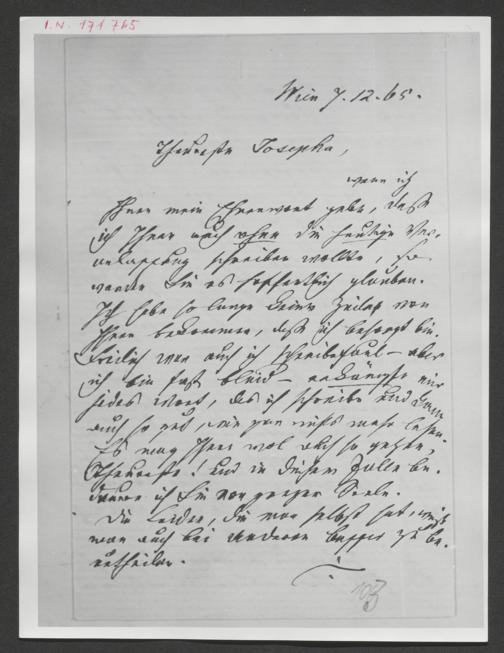 I.N. 171765
Wien 7.12.65.
Theuerste Josepha,
wenn ich
Ihnen mein Ehrenwort gebe, daß
ich Ihnen auch ohne die heutige Ver-
anlassung schreiben wollte, so
werden Sie es hoffentlich glauben.
Ich habe so lange keine Zeile von
Ihnen bekommen, daß ich besorgt bin.
Freilich war auch ich schreibefaul – aber
ich bin fast blind – erkämpfe mir
jedes Wort, das ich schreibe und kann
auch so gut, wie gar nichts mehr lesen.
Es mag Ihnen wol auch so gehen,
Theuerste! und in diesem Falle be-
daure ich Sie von ganzer Seele.
Die Leiden, die man selbst hat, weiß
man auch bei Anderen besser zu be-
urtheilen.